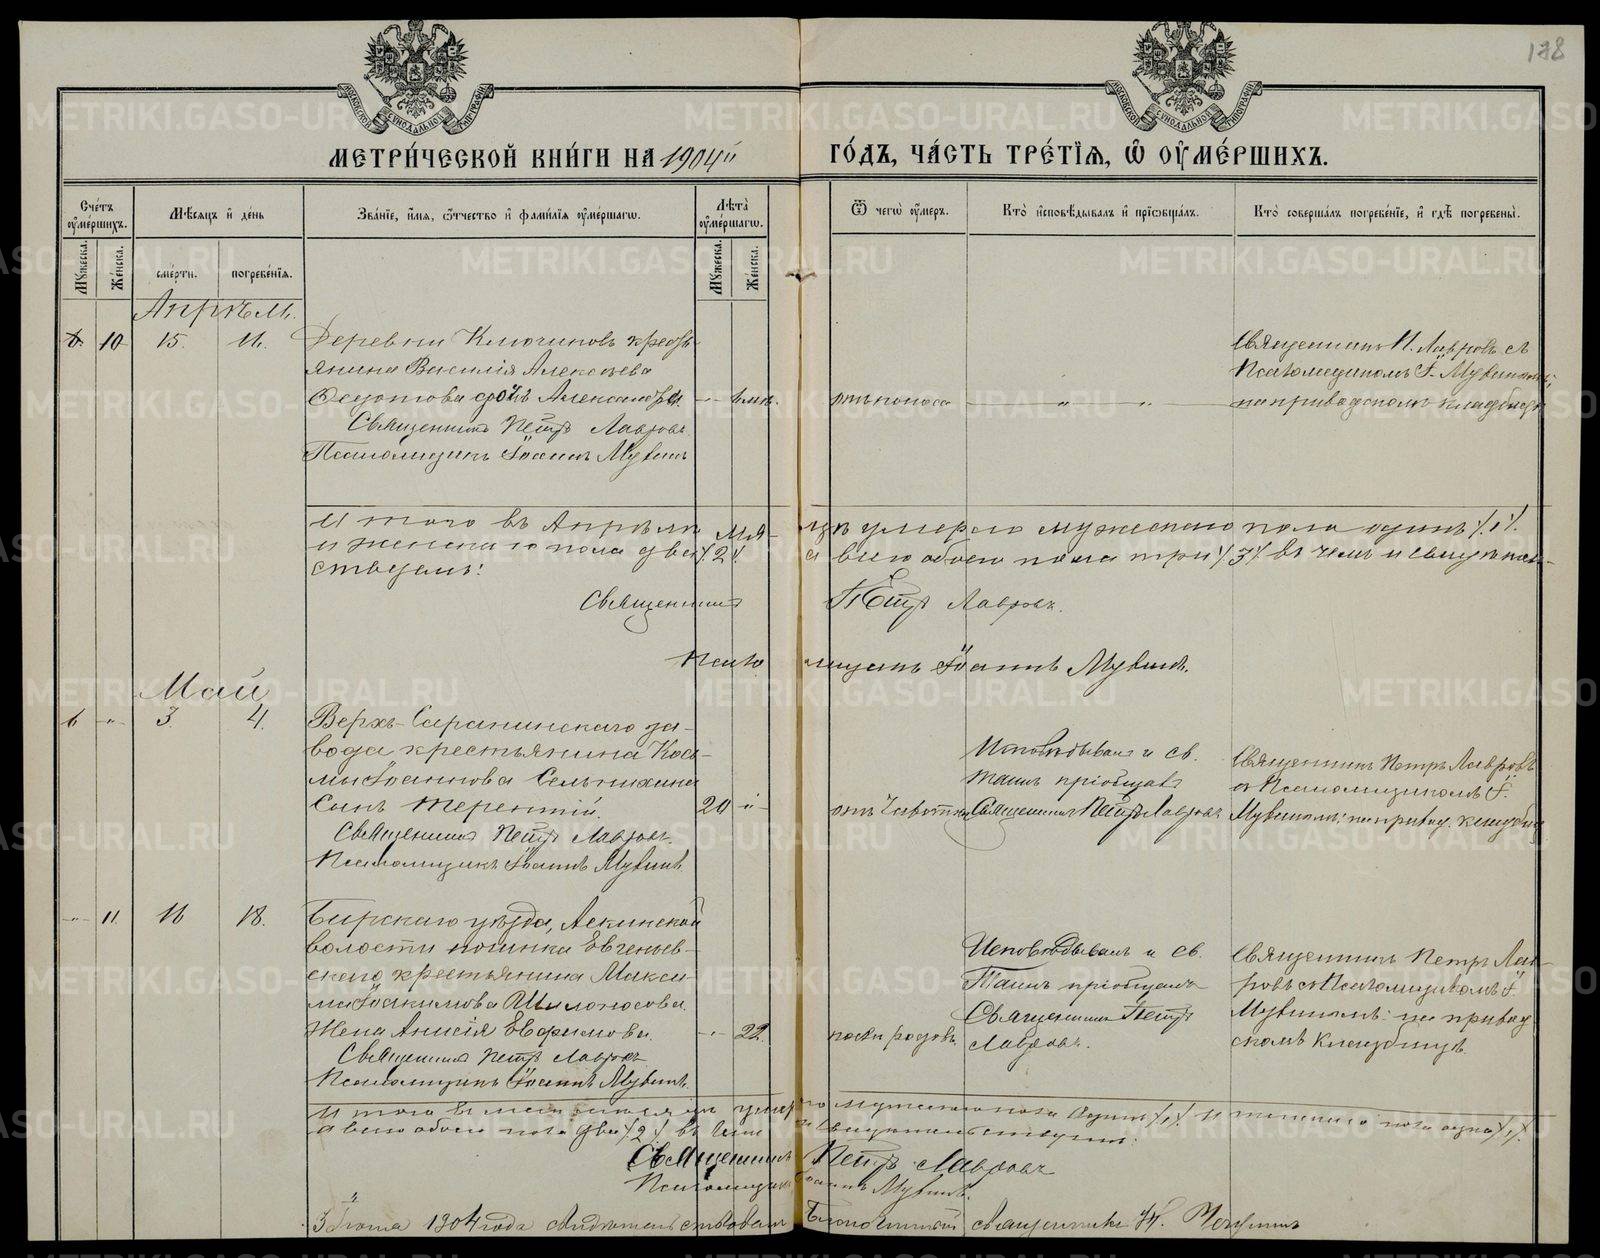 178
МЕТРИ́ЧЕСКОЙ КНИ́ГИ НА 1904й
ГО́ДЪ, ЧА́СТЬ ТРЕ́ТІЯ, Ѽ ОУМЕ́РШИХЪ.
Сче́тъ оу҆ме́ршихъ.
Мѣсяцъ и҆ де́нь
Зва́ніе, и҆́мя, ѻ҆́тчество и҆ фами́лія оу҆ме́ршагѡ.
Лѣ́та оу҆ме́ршагѡ.
Ѿ чегѡ̀ оу҆́меръ.
Кто̀ и҆сповѣ́дывалъ и҆ прїѡбща́лъ.
Кто̀ соверша́лъ погребе́ніе, и҆ гдѣ̀ погребены̀.
Му́жеска.
Же́нска.
сме́рти.
погребе́нія.
Му́жеска.
Же́нска.
Апрѣль.
10 15. 16.
Деревни Ключиковъ кресть-
янина Василія Алексѣева
Федотова дочь Александра - " - 6 мѣс. отъ поноса - " - " -
Священникъ Петръ Лавровъ
Псаломщикъ Іоаннъ Мувинъ
Священникъ П. Лавровъ съ
Псаломщикомъ І. Мувинымъ,
на приходскомъ кладбищѣ
Итого въ Апрѣлѣ мѣсяцѣ умерло мужескаго пола одинъ /1/.
и женскаго пола два /2/. а всего обоего пола три /3/ въ чемъ и свидѣтель-
ствуемъ:
Священникъ Петръ Лавровъ.
Псаломщикъ Іоаннъ Мувинъ.
Май
6 - " - 3. 4.
Верхъ-Саранинскаго за-
вода крестьянина Кось-
мы Іоаннова Сельтихина
Сынъ Терентій. 20 - " - отъ Чахотки
Священникъ Петръ Лавровъ.
Псаломщикъ Іоаннъ Мувинъ.
Исповѣдывалъ и св.
таинъ пріобщалъ
Священникъ Петръ Лавровъ
Священникъ Петръ Лавровъ
съ Псаломщикомъ І.
Мувинымъ: на приход. кладбищѣ
- " - 11. 16 18.
Бирскаго уѣзда, Аскинской
волости починка Евгеньев-
скаго крестьянина Макси-
ма Іоакимова Шилоносова
Жена Анисія Евфимова. - " - 22. послѣ родовъ.
Священникъ Петръ Лавровъ
Псаломщикъ Іоаннъ Мувинъ.
Исповѣдывалъ и св.
Таинъ пріобщалъ
Священникъ Петръ
Лавровъ.
Священникъ Петръ Лав-
ровъ съ Псаломщикомъ І.
Мувинымъ: на приход
скомъ кладбищѣ.
Итого въ маѣ мѣсяцѣ умерло мужескаго пола одинъ /1/. и женскаго пола одна /1/.
а всего обоего пола два /2/ въ чемъ и свидѣтельствуемъ:
Священникъ Петръ Лавровъ
Псаломщикъ Іоаннъ Мувинъ.
3 Іюня 1904 года свидѣтельствовалъ Благочинный священникъ